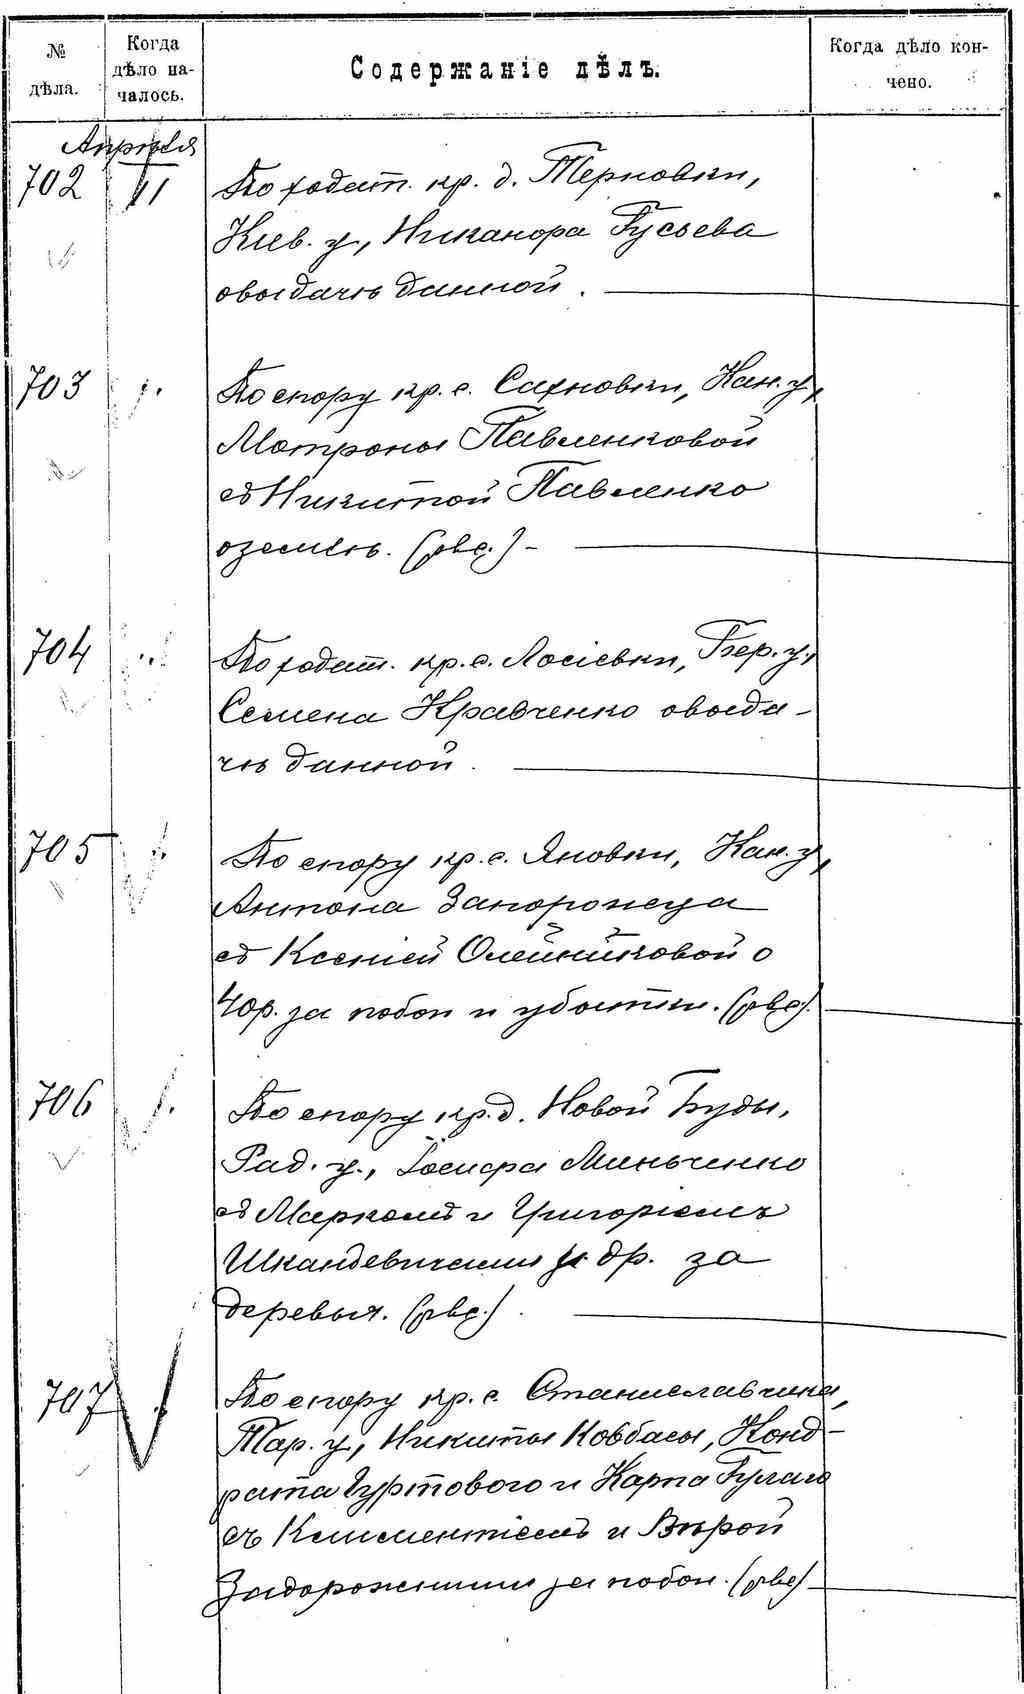 № дѣла.
Когда дѣло на-
чалось.
Содержаніе дѣлъ.
Когда дѣло кон-
чено.
Апрѣля
702 11 По ходат. кр. д. Терновки,
Кіев. у., Никанора Гусьева
о выдачѣ данной.
703 " По спору кр. с. Сахновки, Кан. у.,
Матроны Павленковой
съ Никитой Павленко
о землѣ. (рвс.) -
704 " По ходат. кр. с. Лосіевки, Бер. у.,
Семена Кравченко о выда-
чѣ данной.
705 " По спору кр. с. Яновки, Кан. у.,
Антона Запорожца
съ Ксеніей Олейниковой о
40р. за побои и убытки. (рвс.)
706 " По спору кр. д. Новой Буды,
Рад. у., Іосифа Минченко
съ Маркомъ и Григоріемъ
Шкандевичами и др. за
деревья. (рвс.)
707 " По спору кр. с. Станиславчика,
Тар. у., Никиты Ковбасы, Конд-
рата Гуртового и Карпа Гулаго
съ Климентіемъ и Вѣрой
Задорожними за побои. (рвс)